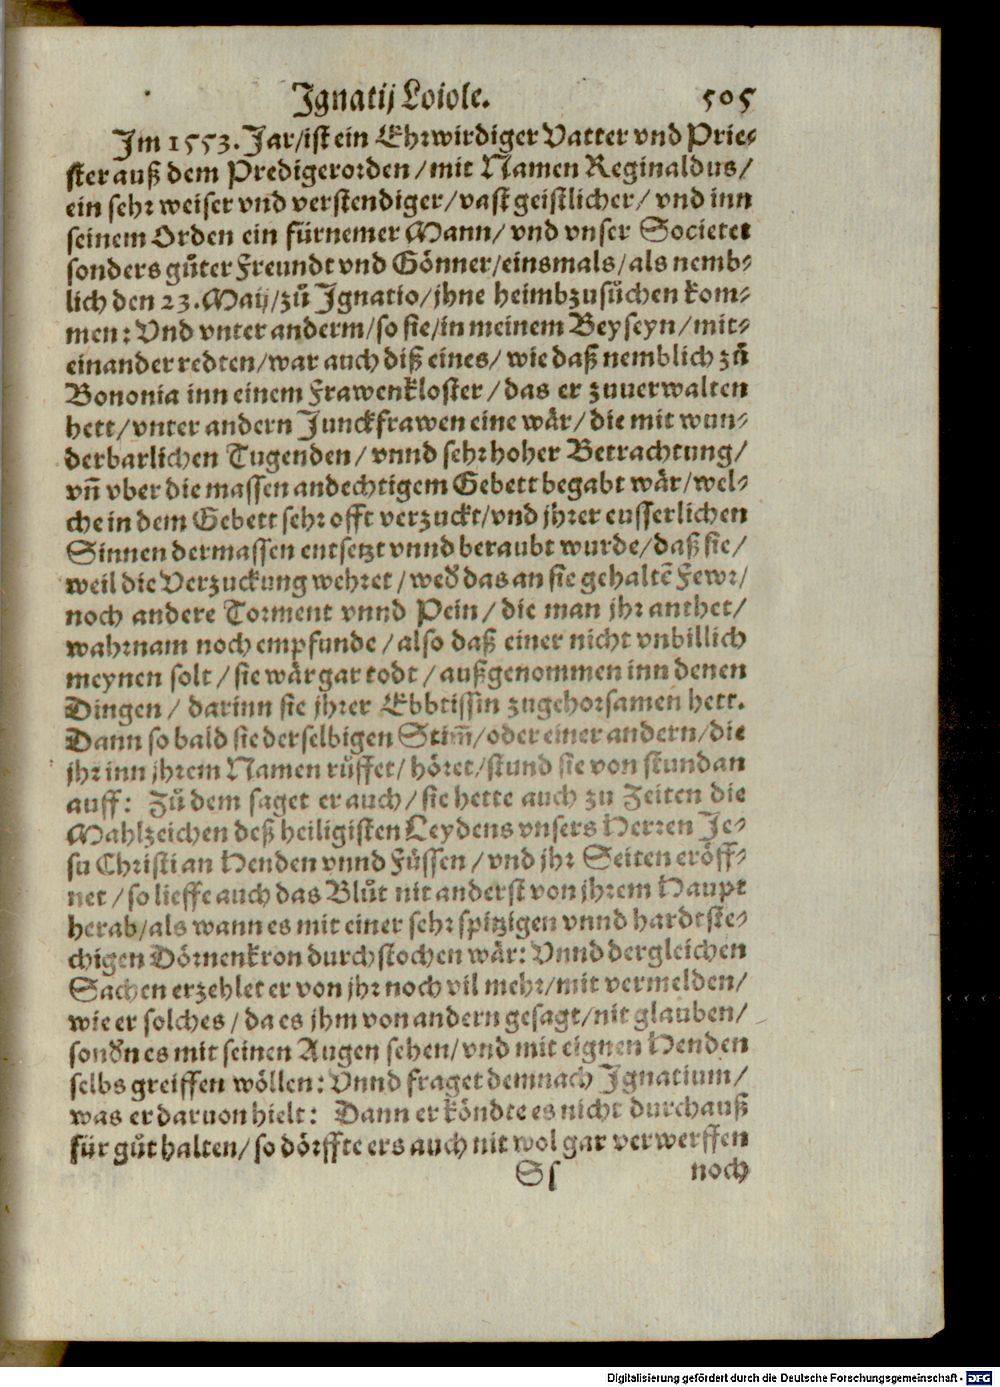 Ignatij Loiole. 505
Im 1553. Jar/ist ein Ehrwirdiger Vatter vnd Prie-
ster auß dem Predigerorden/mit Namen Reginaldus/
ein sehr weiser vnd verstendiger/vast geistlicher/ vnd inn
seinem Orden ein fürnemer Mann/ vnd vnser Societet
sonders gůter Freundt vnd Gönner/einsmals/als nemb-
lich den 23. Maij/zů Ignatio/jhne heimbzusůchen kom-
men: Vnd vnter anderm/so sie/in meinem Beyseyn/mit-
einander redten/war auch diß eines/ wie daß nemblich zů
Bononia inn einem Frawenkloster/das er zuuerwalten
hett/vnter andern Junckfrawen eine wär/die mit wun-
derbarlichen Tugenden/ vnnd sehr hoher Betrachtung/
vñ vber die massen andechtigem Gebett begabt wär/wel-
che in dem Gebett sehr offt verzuckt/vnd jhrer eusserlichen
Sinnen dermassen entsetzt vnnd beraubt wurde/daß sie/
weil die Verzuckung wehret/wed᷑ das an sie gehaltẽ Fewr/
noch andere Torment vnnd Pein/die man jhr anthet/
wahrnam noch empfunde/also daß einer nicht vnbillich
meynen solt/sie wär gar todt/außgenommen inn denen
Dingen/ darinn sie jhrer Ebbtissin zugehorsamen hett.
Dann so bald sie derselbigen Stim̃/oder einer andern/die
jhr inn jhrem Namen růffet/höret/stund sie von stundan
auff: Zů dem saget er auch/sie hette auch zu Zeiten die
Mahlzeichen deß heiligisten Leydens vnsers Herren Je-
su Christi an Henden vnnd Füssen/vnd jhr Seiten eröff-
net/so lieffe auch das Blůt nit anderst von jhrem Haupt
herab/als wann es mit einer sehr spitzigen vnnd hardt ste-
chigen Dörnenkron durchstochen wär: Vnnd dergleichen
Sachen erzehlet er von jhr noch vil mehr/mit vermelden/
wie er solches/da es jhm von andern gesagt/nit glauben/
sond᷑n es mit seinen Augen sehen/vnd mit eignen Henden
selbs greiffen wöllen: Vnnd fraget demnach Ignatium/
was er daruon hielt: Dann er köndte es nicht durchauß
für gůt halten/so dörffte ers auch nit wol gar verwerffen
Ss noch
Digitalisierung gefördert durch die Deutsche Forschungsgemeinschaft - DFG